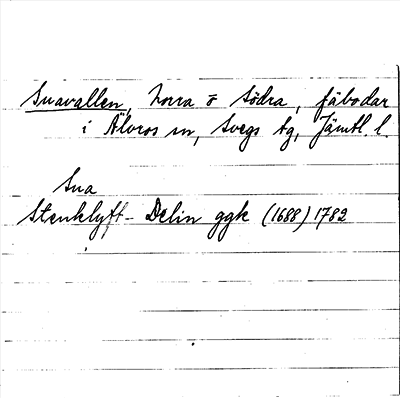 Snavallen, Norra o Södra, fäbodar
i Älvros sn, Svegs tg, Jämtl. l.
Sna
Stenklyft - Delin ggk (1688) 1782